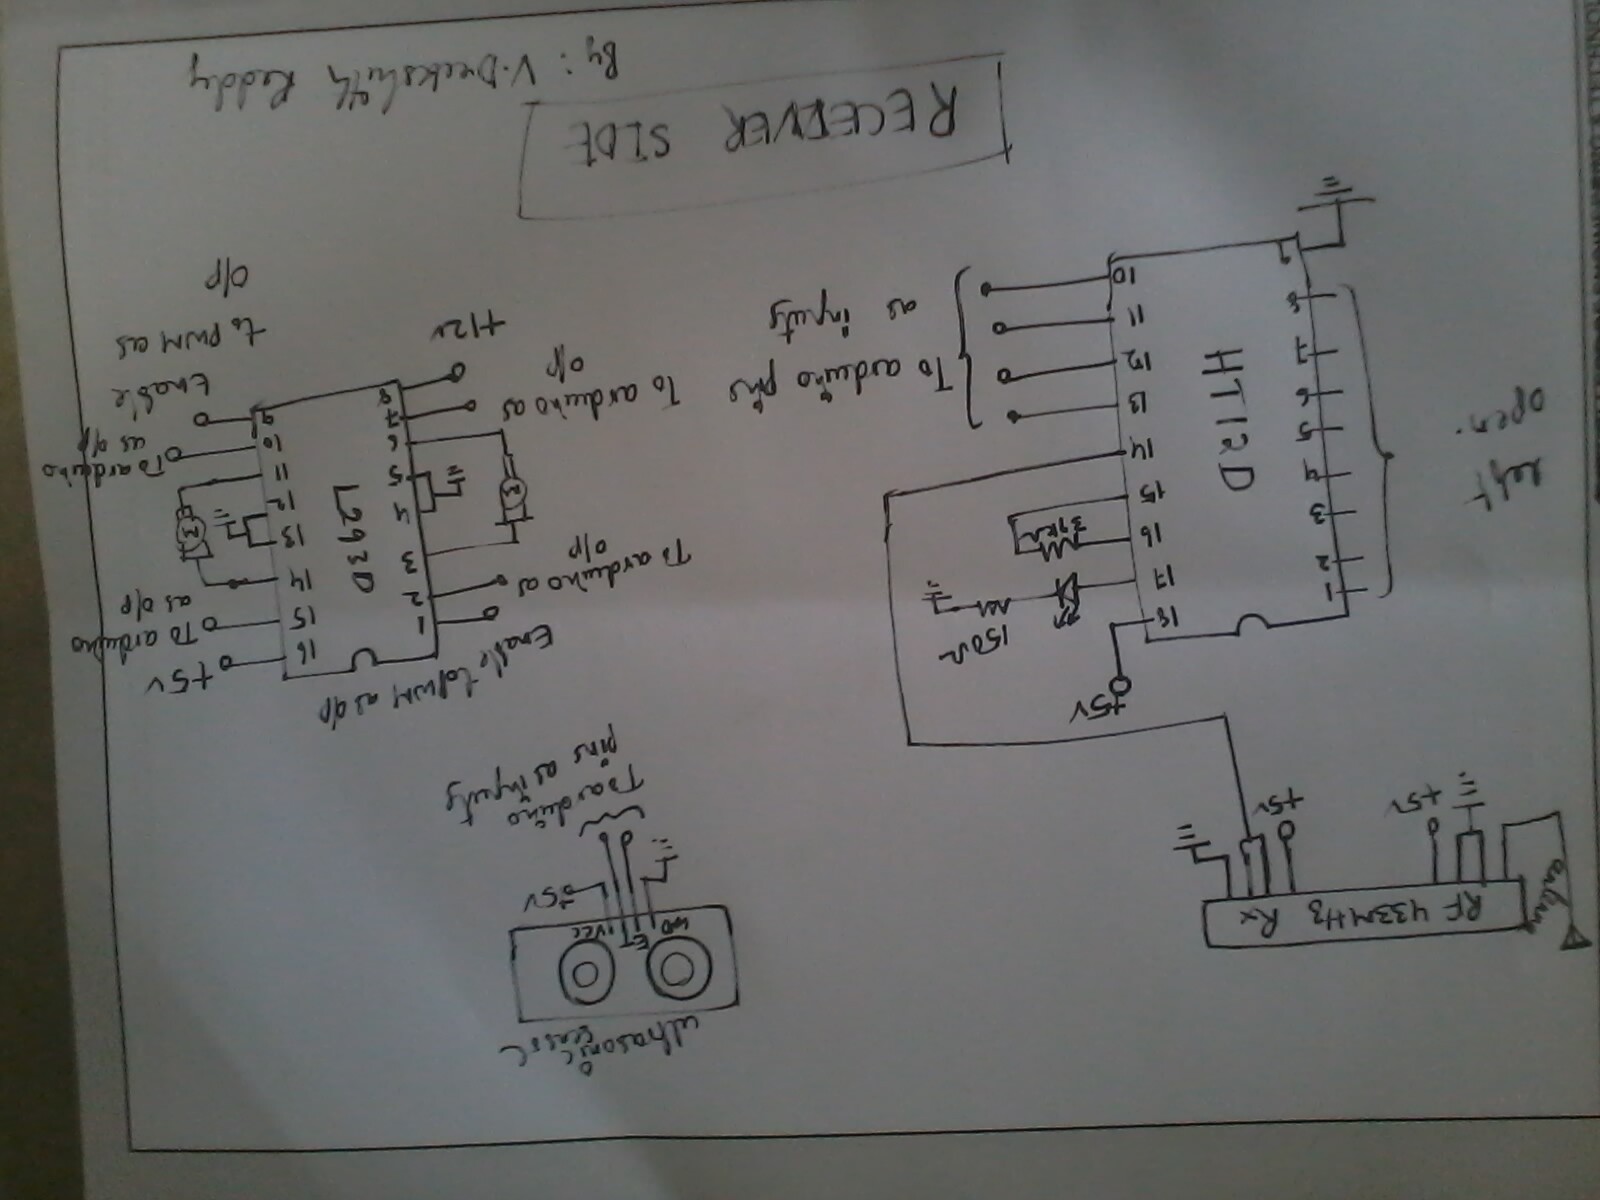 antenn
RF 433MHz Rx
+5v
+5v
ultrasonic
VCC
T
E
+5V
To arduino
pins as inputs
+5V
HT12D
1
2
3
4
5
6
7
8
9
18
17
16
15
14
13
12
11
10
150Ω
left
open.
To arduino pins
as inputs
Enable to PWM as o/p
L293D
1
2
3
4
5
6
7
8
16
15
14
13
12
11
10
9
M
M
To arduino as
o/p
To arduino as
o/p
+12v
+5v
To arduino
as o/p
To arduino
as o/p
Enable
to PWM as
o/p
RECEIVER SIDE
By: V. Reddy